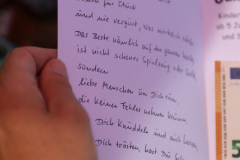 für Stück
und nie vergisst, was wirklich zählt
Das Beste nämlich auf der ganzen Welt
ist nicht schönes Spielzeug oder Geld
sondern
liebe Menschen um Dich rum,
die keinen Fehler nehmen krumm
Dich knuddeln und auch
Dich trösten, hast Du
Kinder
ab 5